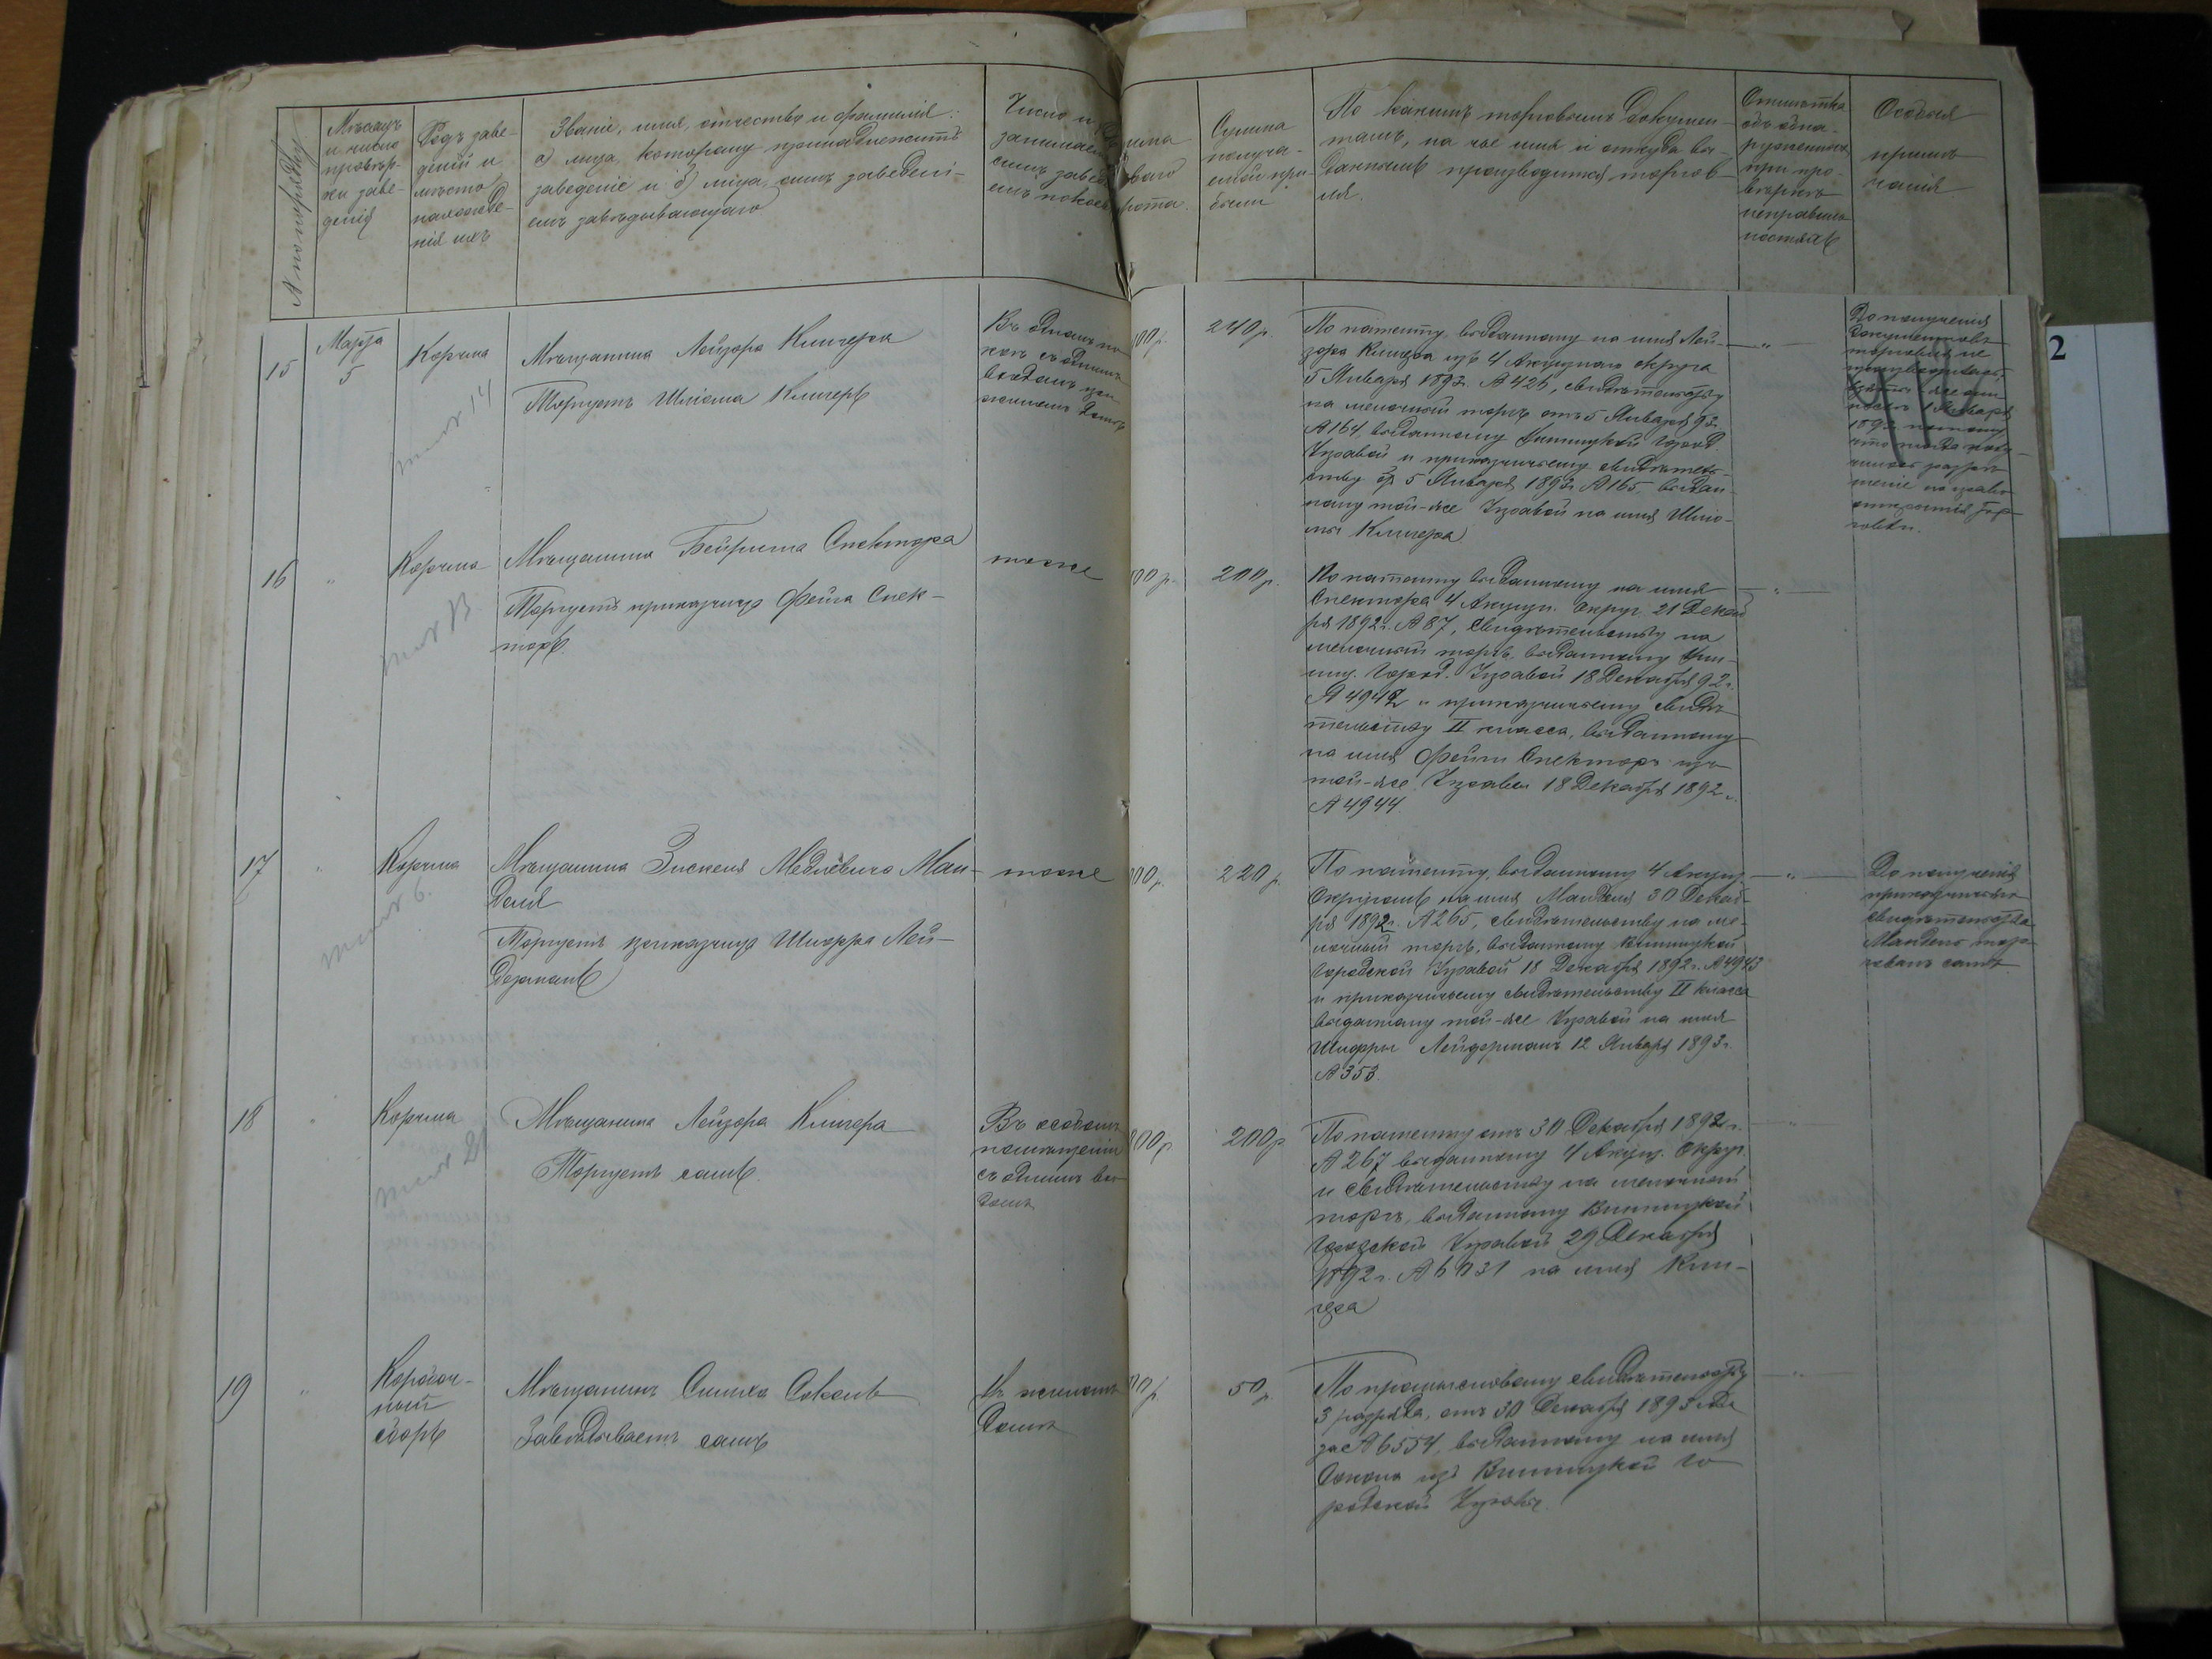 № по порядку
Мѣсяцъ
и число
провѣр-
ки заве-
денія
Родъ заве-
деній и
мѣсто
нахожде-
нія ихъ
Званіе, имя, отчество и фамилія:
а) лица, которому принадлежитъ
заведеніе и б) лица, симъ заведені-
емъ завѣдывающаго
Число и
занимаем
симъ завед
емъ покоевъ
Сумма
получа-
емой при-
были
По какимъ торговымъ докумен-
тамъ, на чье имя и откуда вы-
даннымъ производится торгов-
ля.
Отмѣтка
объ обна-
руженныхъ
при про-
вѣркѣ
неправиль
ностяхъ
Особыя
примѣ
чанія
15
Марта
5
Корчма
Мѣщанина Лейзора Клигера
Торгуетъ Шлiома Клигеръ
Въ одномъ по
коѣ съ однимъ
входомъ
домѣ
00 р.
240 р.
По патенту, выданному на имя Лей-
зора Клигера изъ 4 Акцизнаго округа
5 Января 1893г. № 426, свидѣтельству
на мелочный торгъ отъ 5 Января 93г.
№ 164, выданному Винницкой Город.
Управой и приказчичьему свидѣтель-
ству отъ 5 Января 1893г. № 165, выдан-
ному той-же Управой на имя Шлiо-
мы Клигера.
"
До полученія
документовъ
торговля не
производилась,
1 Января
1893
16
"
Корчма
Мѣщанина Бейриша Спектора
Торгуетъ приказчица Фейга Спек-
торъ.
тоже
00 р.
200 р.
По патенту выданному на имя
Спектора 4 Акцизн. Округ. 21 Декаб
ря 1892г. № 87, свидѣтельству на
мелочный торгъ, выданному Вин-
ниц. Город. Управой 18 Декабря 92г.
№ 4942 и приказчичьему свидѣ-
тельству II класса, выданному
на имя Фейги Спекторъ изъ
той-же Управы 18 Декабря 1892 г.
№ 4944.
"
17
"
Корчма
Мѣщанина Зискеля Медлевича Ман-
деля
Торгуетъ приказчица Шифра Лей-
дерманъ
тоже
00 р.
220 р.
По патенту, выданному 4 Акциз.
Округомъ на имя Манделя 30 Декаб-
ря 1892г. № 265, свидѣтельству на ме-
лочный торгъ, выданному Винницкой
Городской Управой 18 Декабря 1892г. № 4943
и приказчичьему свидѣтельству II класса
выданному той-же Управой на имя
Шифры Лейдерманъ 12 Января 1893г.
№ 353.
"
До полученія
приказчичьяго
свидѣтельства
Мандель тор-
говалъ самъ
18
"
Корчма
Мѣщанина Лейзора Клигера
Торгуетъ самъ.
Въ особомъ
помѣщеніи
съ однимъ вхо
домъ
00 р
200 р
По патенту отъ 30 Декабря 1892 г.
№ 267 выданному 4 Акциз. Округ.
и свидѣтельству на мелочной
торгъ, выданному Винницкой
Городской Управой 29 Декабря
1892г. № 6031 на имя Кли-
гера
"
19
"
Коробоч-
ный
сборъ
Мѣщанинъ Симха Соколъ
Завѣдываетъ самъ
Въ жиломъ
домѣ
00 р.
50 р.
По промысловому свидѣтельству
3 разряда, отъ 30 Декабря 1893 года
за № 6554, выданному на имя
Сокола изъ Винницкой Го
родской Управы.
"
2